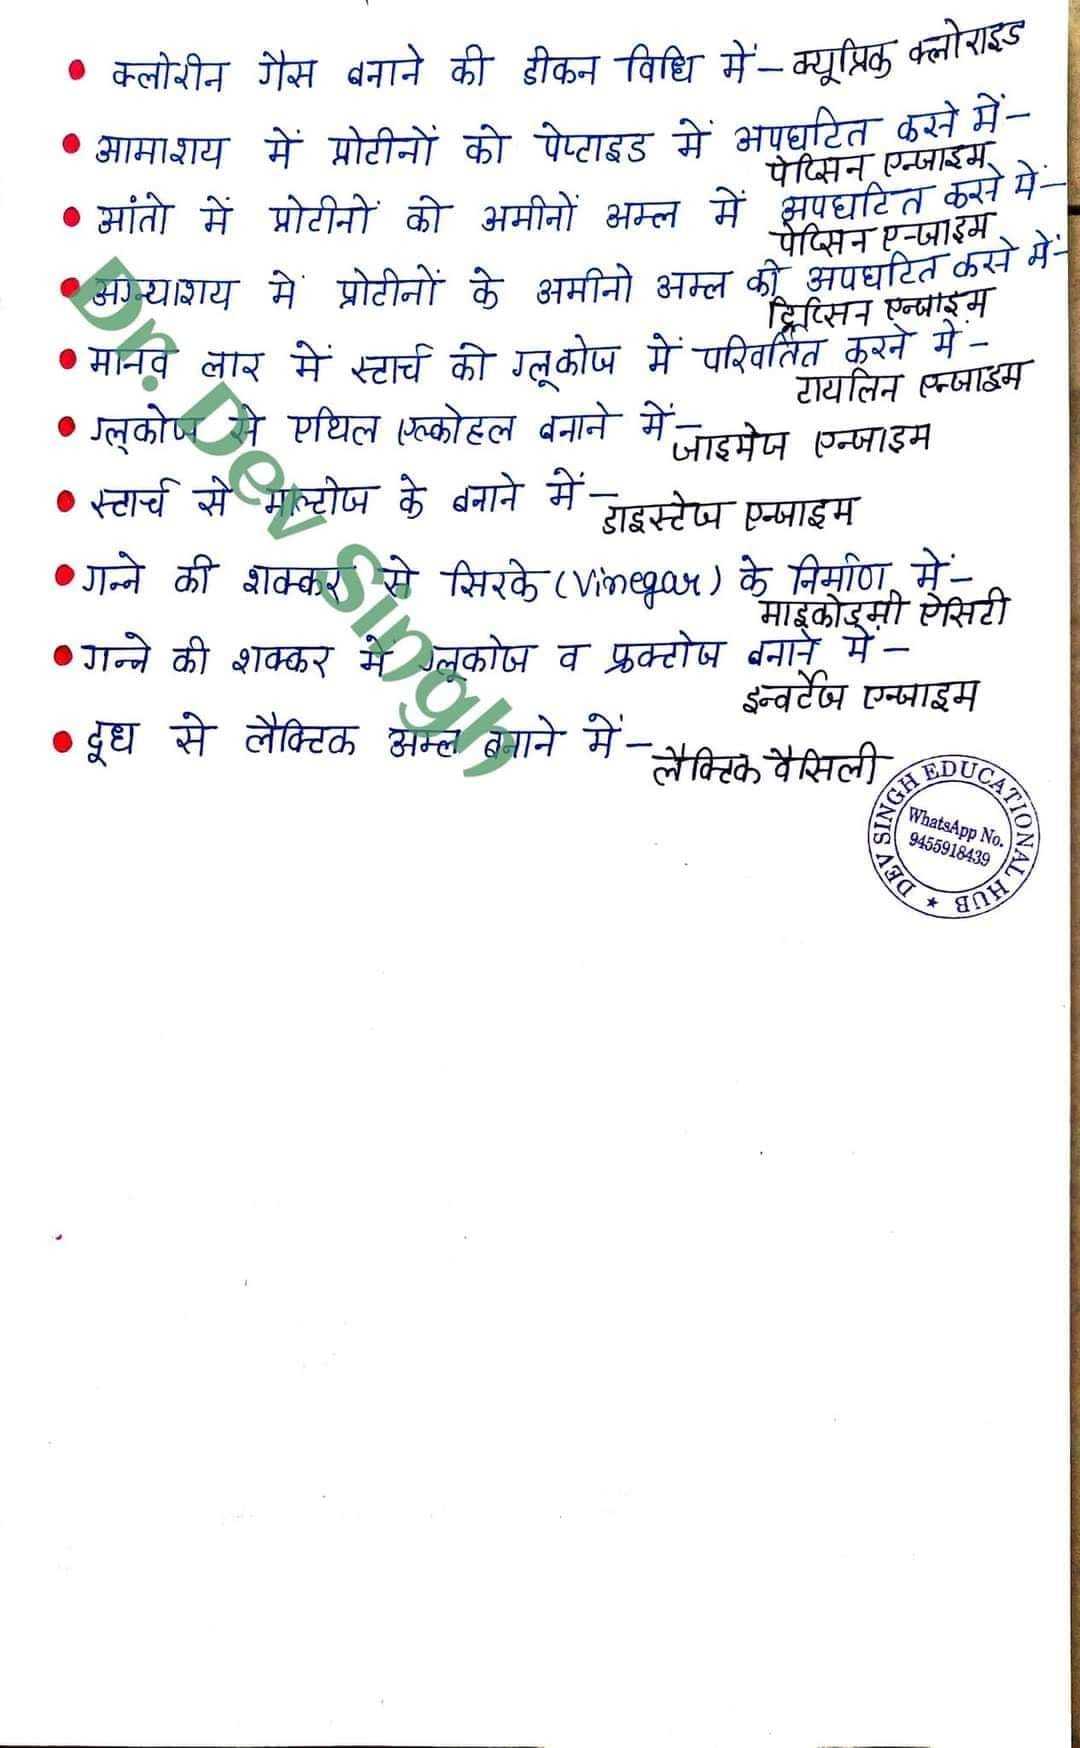 • क्लोरीन गैस बनाने की डीकन विधि में – क्यूप्रिक क्लोराइड
• आमाशय में प्रोटीनों को पेप्टाइड में अपघटित करने में –
पेप्सिन एन्जाइम
• आंतो में प्रोटीनों को अमीनों अम्ल में अपघटित करने में –
पेप्सिन एन्जाइम
• अग्न्याशय में प्रोटीनों के अमीनो अम्ल की अपघटित करने में –
ट्रिप्सिन एन्जाइम
• मानव लार में स्टार्च को ग्लूकोज में परिवर्तित करने में –
टायलिन एन्जाइम
• ग्लूकोज से एथिल एल्कोहल बनाने में – जाइमेज एन्जाइम
• स्टार्च से माल्टोज के बनाने में – डाइस्टेज एन्जाइम
• गन्ने की शक्कर से सिरके (Vinegar) के निर्माण में –
माइकोडर्मी ऐसिटी
• गन्ने की शक्कर में ग्लूकोज व फ्रक्टोज बनाने में –
इन्वर्टेज एन्जाइम
• दूध से लैक्टिक अम्ल बनाने में – लैक्टिक वैसिली
Dr. Dev Singh
DEV SINGH EDUCATIONAL HUB ★
WhatsApp No.
9455918439